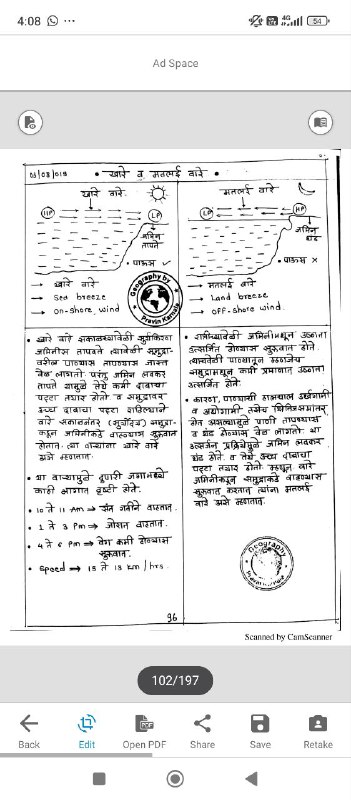 4:08
4G
54
Ad Space
03/08/019
• खारे व मतलई वारे •
खारे वारे
HP
LP
जमिन
तापते
• पाऊस ✓
→ खारे वारे
→ Sea breeze
→ on-shore wind
मतलई वारे
LP
HP
जमिन
थंड
• पाऊस ×
→ मतलई वारे
→ Land breeze
→ off-shore wind
Geography by
Pravin
• खारे वारे सकाळच्यावेळी सूर्यकिरण
जमिनीस तापवते त्यावेळी समुद्रा-
वरील पाण्यास तापण्यास जास्त
वेळ लागतो. परंतु जमिन लवकर
तापते यामुळे तेथे कमी दाबाचा
पट्टा तयार होतो व समुद्रावर
उच्च दाबाचा पट्टा राहिल्याने
वारे सकाळनंतर (सूर्योदय) समुद्रा-
कडून जमिनीकडे वाहण्यास सुरुवात
होतात. या वाऱ्यांना खारे वारे
असे म्हणतात.
• या वाऱ्यामुळे दुपारी
काही भागात वृष्टी होते.
• 10 ते 11 Am ⇒ मंद गतीने वाहतात.
• 1 ते 3 Pm ⇒ जोरात वाहतात.
• 4 ते 6 Pm ⇒ वेग कमी होण्यास
सुरुवात.
• Speed → 15 ते 18 km / hrs.
• रात्रीच्यावेळी जमिनीमधून उष्णता
उत्सर्जित होण्यास सुरुवात होते.
त्यावेळी पाण्यातून
समुद्रामधून कमी प्रमाणात उष्णता
उत्सर्जित होते.
• कारण, पाण्याची उर्ध्वगामी
व अधोगामी तसेच क्षितिजसमांतर
होत असल्यामुळे पाणी तापण्यास
व थंड होण्यास वेळ लागतो. या
उत्सर्जन प्रक्रियेमुळे जमिन लवकर
थंड होते. व तेथे उच्च दाबाचा
पट्टा तयार होतो म्हणून वारे
जमिनीकडून समुद्राकडे वाहण्यास
सुरुवात करतात त्यांना मतलई
वारे असे म्हणतात.
Geography
96
Scanned by CamScanner
102/197
Back
Edit
Open PDF
Share
Save
Retake